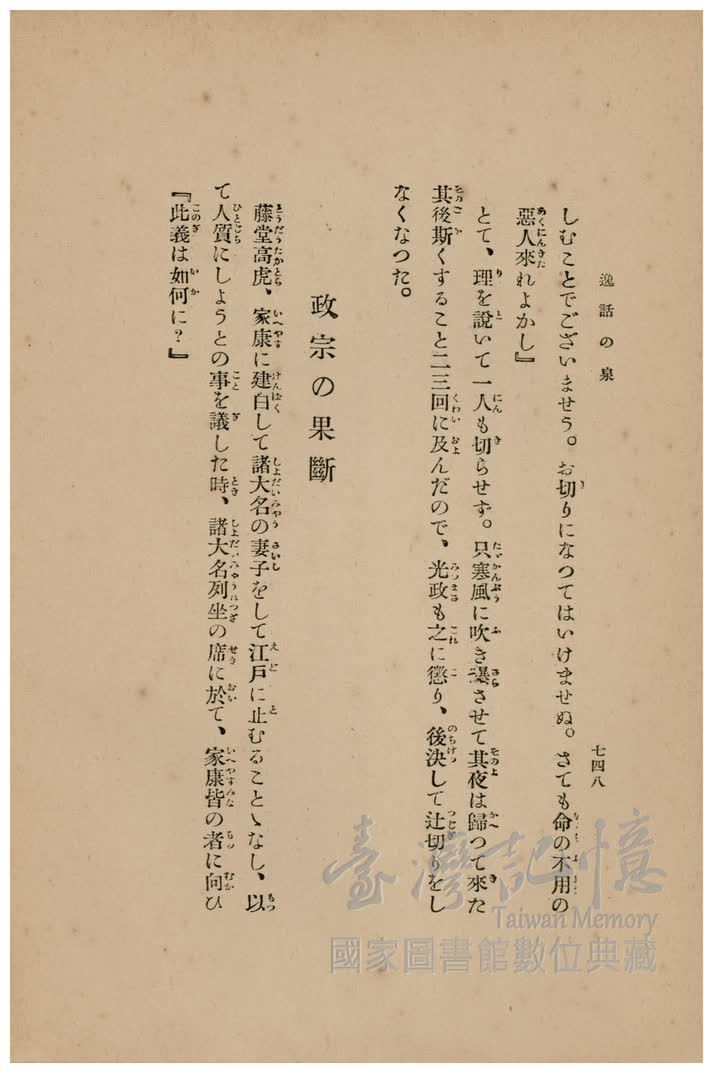 逸話の泉
七四八
しむことでございませう。お切りになつてはいけませぬ。さても命の不用の
惡人來れよかし』
とて、理を說いて一人も切らせず。只寒風に吹き瀑させて其夜は歸つて來た
其後斯くすること二三回に及んだので、光政も之に懲り、後決して辻切りをし
なくなつた。
政宗の果斷
藤堂高虎、家康に建白して諸大名の妻子をして江戶に止むることゝなし、以
て人質にしようとの事を議した時、諸大名列坐の席に於て、家康皆の者に向ひ
『此義は如何に?』
臺灣記憶
Taiwan Memory
國家圖書館數位典藏